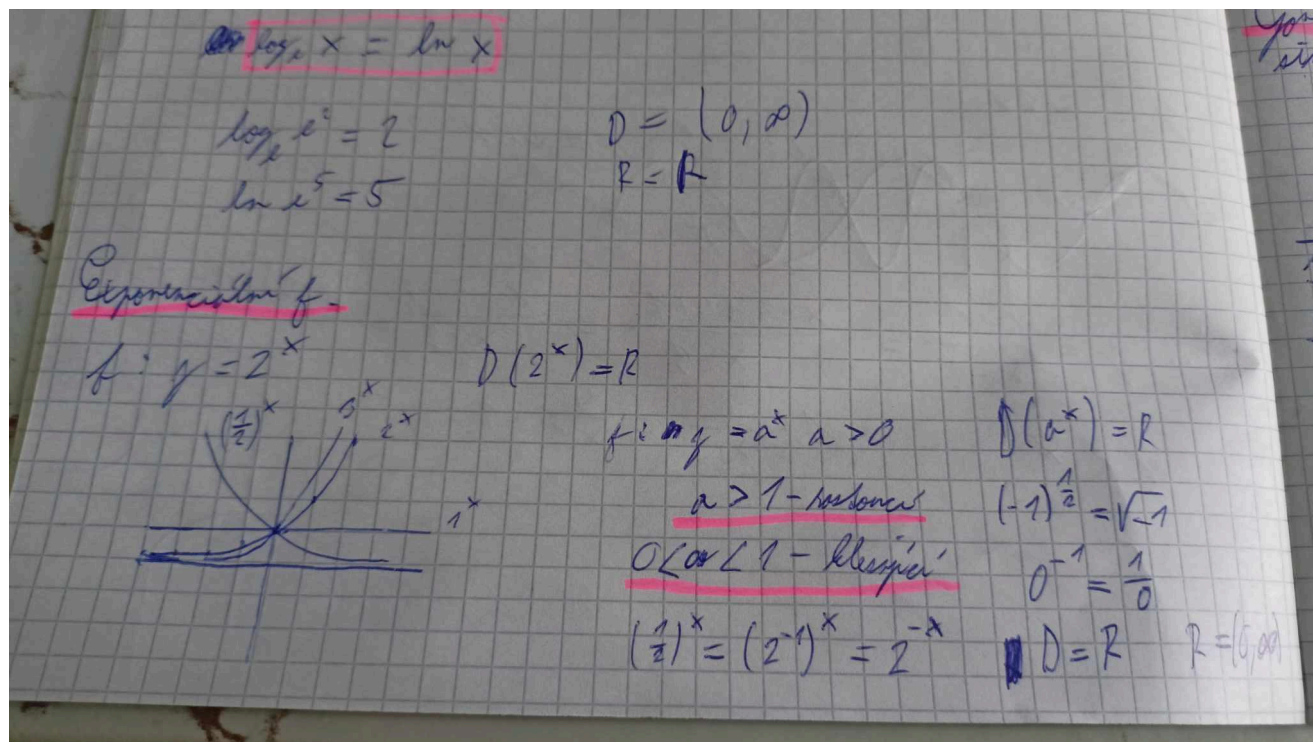 log_e x = ln x
log_e e² = 2
ln e⁵ = 5
D = (0, ∞)
R = R
Exponenciální f.
f: y = 2^x
D(2^x) = R
(1/2)^x
3^x
2^x
1^x
f: y = a^x a > 0
a > 1 - rostoucí
0 < a < 1 - klesající
(1/2)^x = (2^-1)^x = 2^-x
D(a^x) = R
(-1)^1/2 = √-1
0^-1 = 1/0
D = R R = (0, ∞)